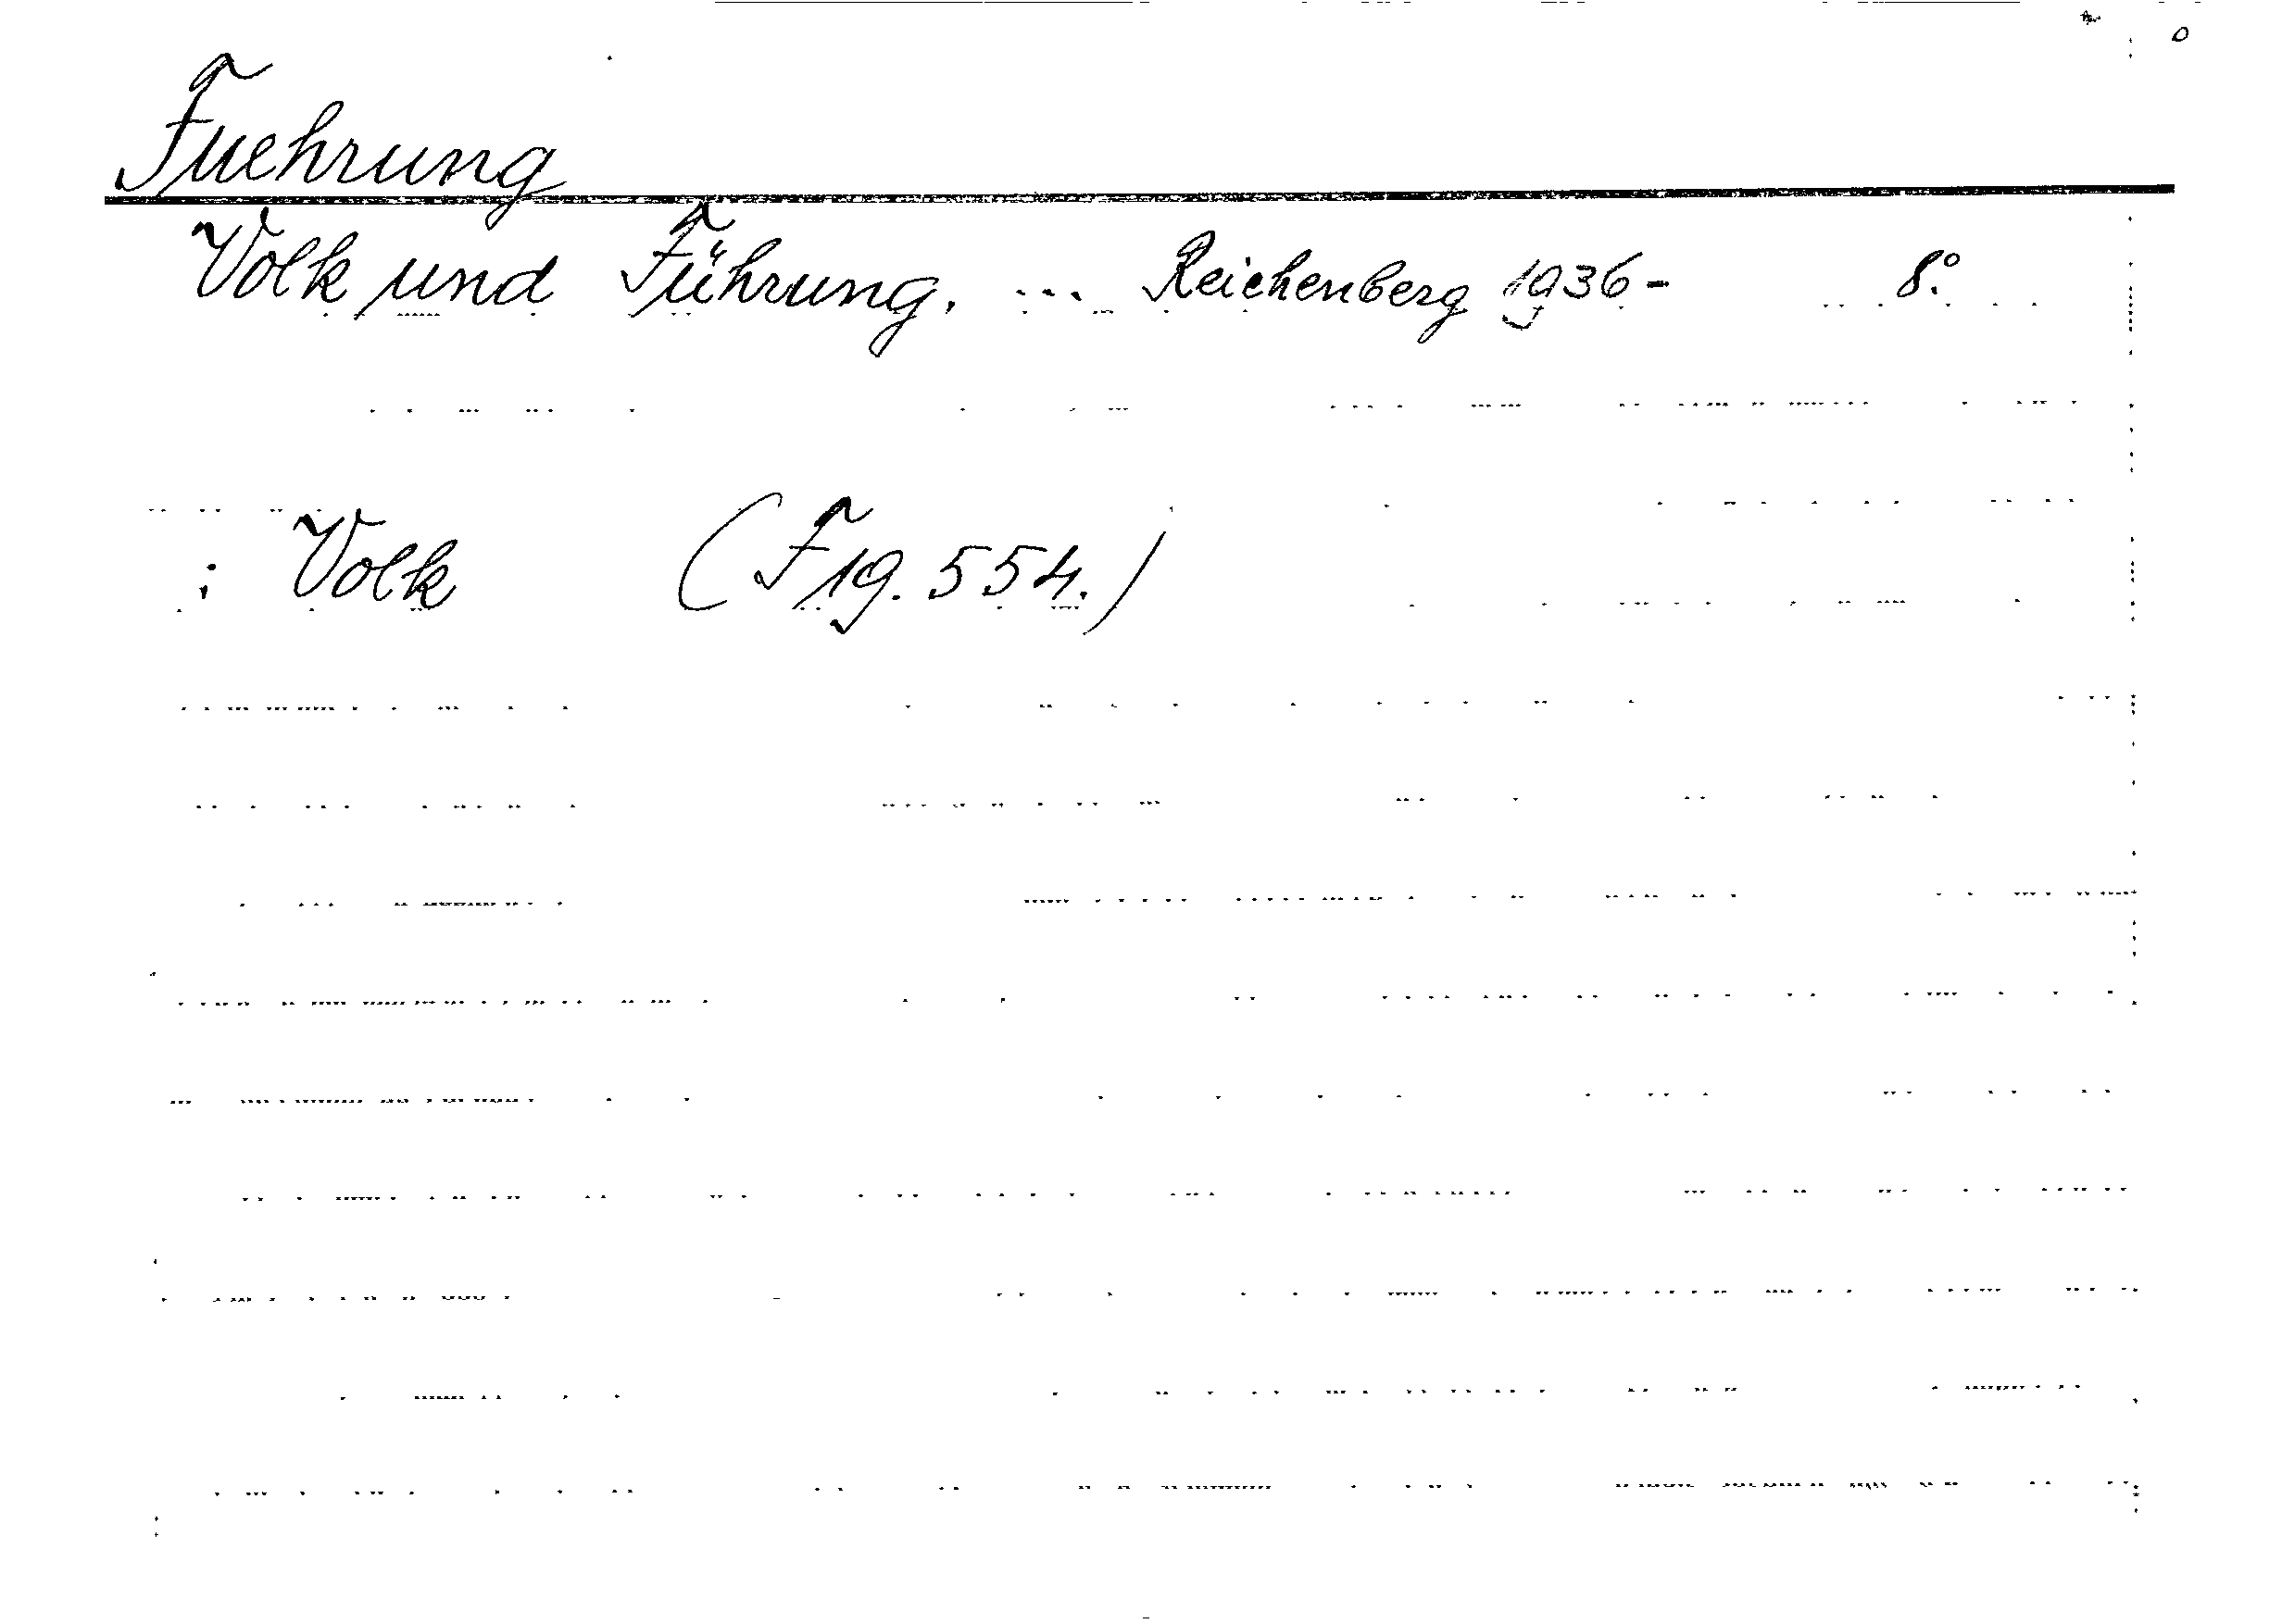 Fuehrung
Volk und Führung. ... Reichenberg 1936- 8.°
: Volk (F 19.554.)